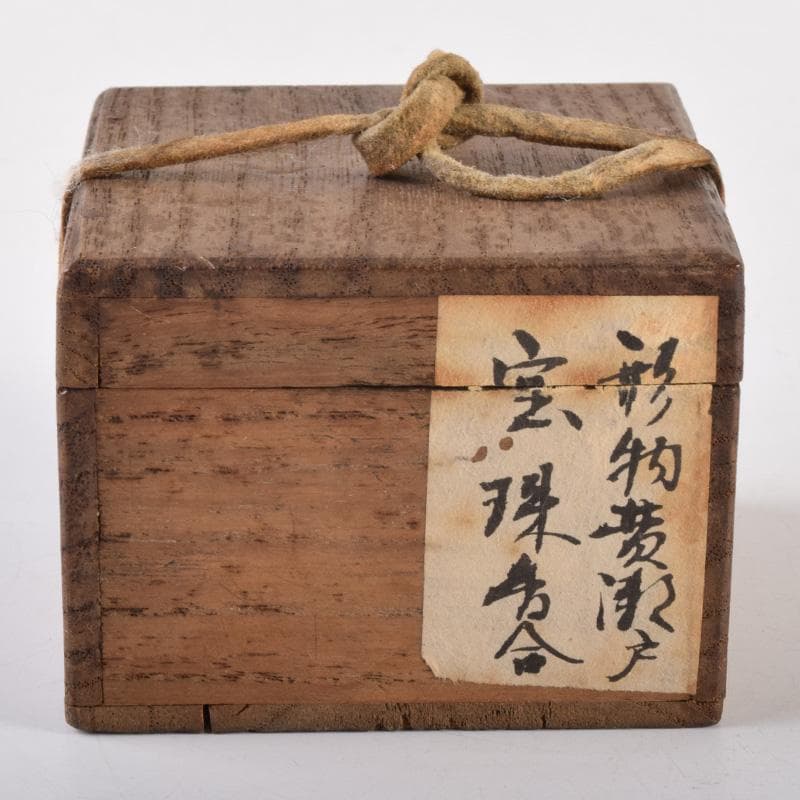 形物黄瀬戸
宝珠香合